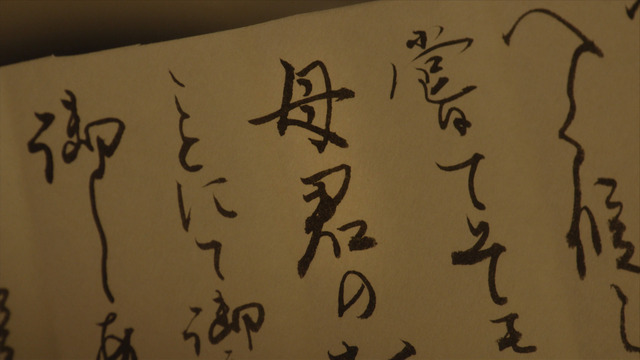 へく候
嘗てそも
母君の
ことにて御
御し